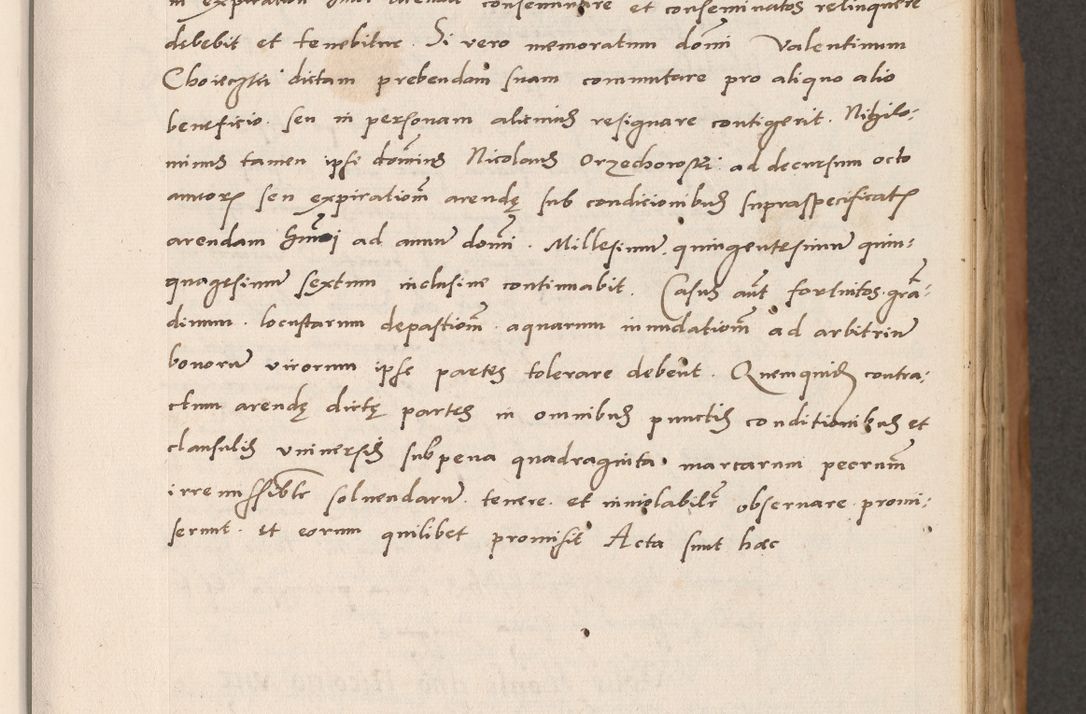 in expiration hmoi arendae conseminare et conseminatos relinquere
debebit et tenebitur. Si vero memoratum domi Valentinum
Choieczski dictam prebendam suam commutare pro aliquo alio
beneficio. seu in personam alicuius resignare contigerit. Nihilo-
minus tamen ipse dominus Nicolaus Orzechowski ad decursum octo
annorum seu expirationem arendę sub condicionibus supraspecificatis
arendam hmoi ad annum domi. Millesimum quingentesimum quin-
quagesimum sextum inclusive continuabit. Casus aut fortuitos grā-
dinum. locustarum depastionem. aquarum inundationem ad arbitrium
bonorum virorum ipse partes tolerare debent. Quemquidem contra-
ctum arendę dictę partes in omnibus punctis conditionibus et
clausulis universis sub pena quadraginta marcarum pecunarum
irremissibiliter solvendarum. tenere. et inviolabiliter observare promi-
serunt. et eorum quilibet promisit Acta sunt haec